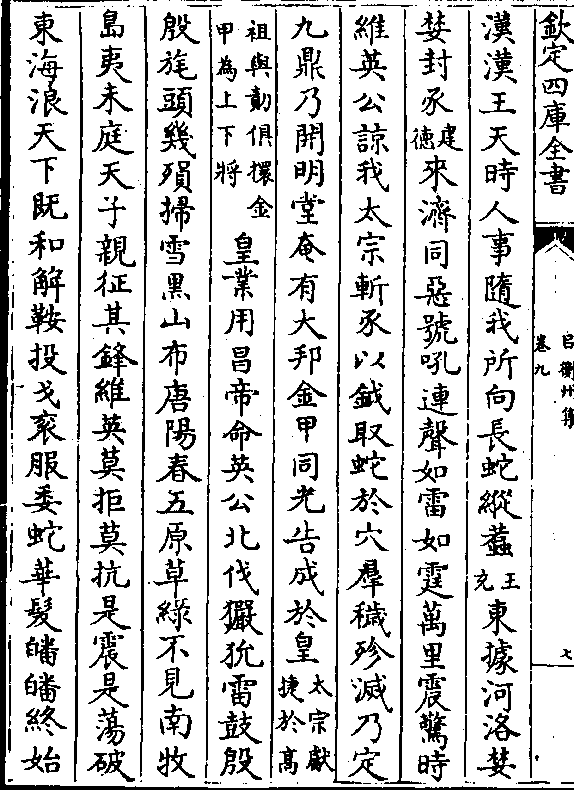 欽定四庫全書
卷九
呂衡州集
七
漢漢王天時人事隨我所向長蛇縱蠚王充東據河洛婪
婪封豕建德來濟同惡號吼連聲如雷如霆萬里震驚時
維英公諒我太宗斬豕以鉞取蛇於穴羣穢殄滅乃定
九鼎乃開明堂奄有大邦金甲同光告成於皇太宗獻捷於高
祖與勣俱擐金甲為上下將皇業用昌帝命英公北伐玁狁雷鼓殷
殷旄頭幾殞掃雪黑山布唐陽春五原草綠不見南牧
島夷未庭天子親征其鋒維英莫拒莫抗是震是蕩破
東海浪天下既和解鞍投戈袞服委蛇華髮皤皤終始